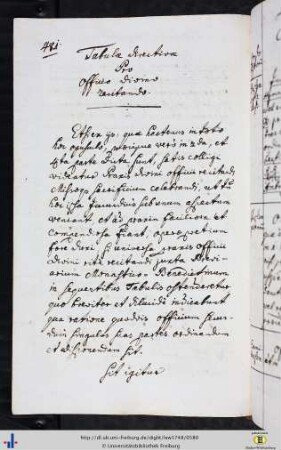 481
Tabula directiva
Pro
Officio divino
recitando.
Etsi ex ys, quæ hactenus in toto
hoc opusculo, utrique vers in 2da, et
4ta parte dicta sunt, satis colligi
videatur Praxis divini officii recitandi,
Missæque Sacrificium celebrandi, ut tamen
hæc
veniant, et ad praxin faciliora et
compendiosa fiant, operæ pretium
fore duxi, si universa praxis Officii
Divini rite recitandi juxta Brevi-
arium Monastico-Benedictinum
in sequentibus Tabulis ostenderetur
quo breviter et dilucide indicabunt
qua ratione quodvis officium secun-
dum singulas suas partes ordinandum
et absolvendum sit.
Sit igitur
http://dl.ub.uni-freiburg.de/diglit/hs1748/0580
© Universitätsbibliothek Freiburg